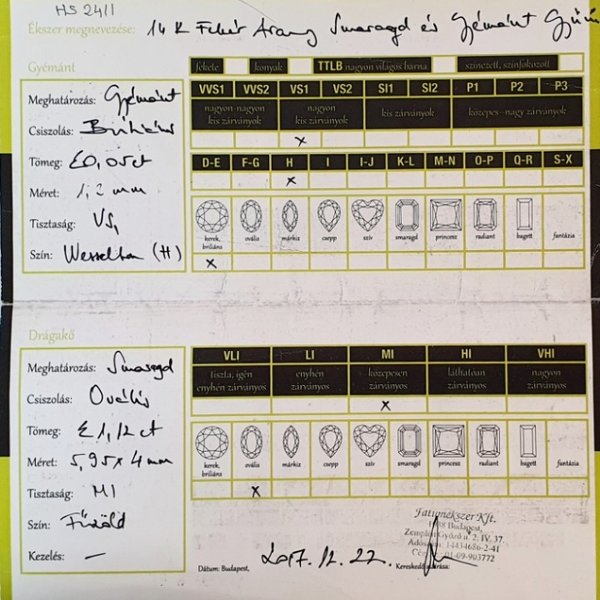 HS 2411
Ékszer megnevezése: 14 K Fehér Arany Smaragd és Gyémánt
Gyémánt
fekete konyak TTLB nagyon világos barna színezett, színfokozott
Meghatározás: Gyémánt
Csiszolás: Briliáns
Tömeg: Σ0,05ct
Méret: 1,2 mm
Tisztaság: VS1
Szín: Wesselton (H)
VVS1 VVS2 VS1 VS2 SI1 SI2 P1 P2 P3
nagyon-nagyon kis zárványok nagyon kis zárványok kis zárványok közepes-nagy zárványok
x
D-E F-G H I I-J K-L M-N O-P Q-R S-X
x
kerek, briliáns ovális márkiz csepp szív smaragd princess radiant bagett fantázia
x
Drágakő
Meghatározás: Smaragd
Csiszolás: Ovális
Tömeg: Σ1,12 ct
Méret: 5,95 x 4 mm
Tisztaság: MI
Szín: Fűzöld
Kezelés: —
VLI LI MI HI VHI
tiszta, igén enyhén zárványos enyhén zárványos közepesen zárványos láthatóan zárványos nagyon zárványos
x
kerek, briliáns ovális márkiz csepp szív smaragd princess radiant bagett fantázia
x
Dátum: Budapest, 2017. 12. 22. Kereskedő aláírása:
Fatimékszer Kft.
Budapest,
Zemplén Győző u. 2. IV. 37.